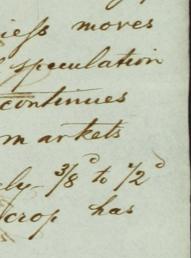 iness moves
speculation
continues
markets
ly 3/8d to 1/2d
crop has